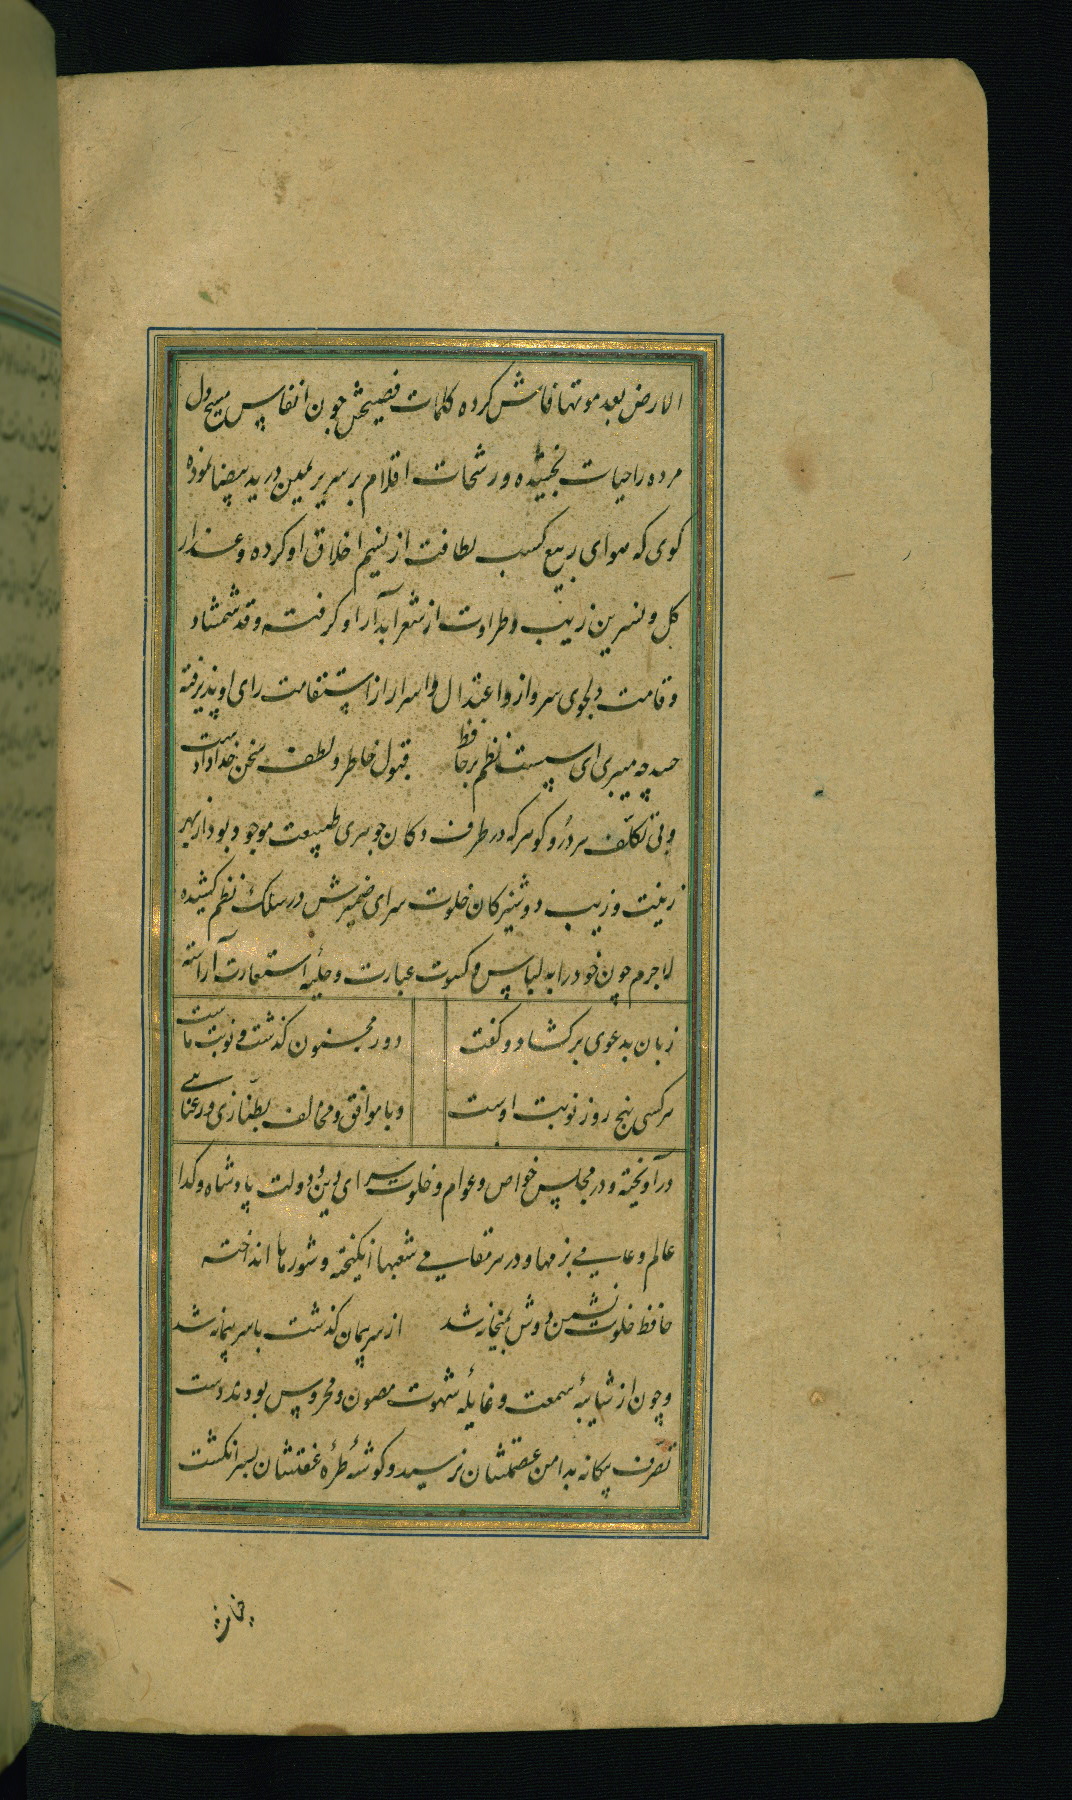 الارض بعد موتها فاش کرده کلمات فصیحش چون انفاس مسیح دل
مرده را حیات بخشیده و رشحات اقلام بر سریر یمین در ید بیضا نموده
کوی که هوای ربیع کسب لطافت از نسیم اخلاق او کرده و عذار
کل و نسرین زیب و طراوت از شعر آبدار او کرفته و قد شمشاد
و قامت دلجوی سرو آزاد اعتدال و اسرار از استقامت رای او پذیرفته
حسد چه میبری ای سست نظم بر حافظ قبول خاطر و لطف سخن خدادادست
و بی تکلف هر در و کوهر که در طرف دکان جوهری طبیعت موجود بود از بهر
زینت و زیب دوشیزکان خلوت سرای ضمیرش در سلک نظم کشیده
لاجرم چون خود را به لباس و کسوت عبارت و حلیه استعارت آراسته
زبان بدعوی برکشاد و کفت دور مجنون کذشت و نوبت ماست
هر کسی پنج روز نوبت اوست و با موافق و مخالف بطنازی و رعنایی
در آویخته و در مجلس خواص و عوام و خلوت سرای دین و دولت پادشاه و کدا
عالم و عامی بزمها و در هر مقامی شعبها انکیخته و شورها انداخته
حافظ خلوت نشین دوش بمیخانه شد از سر پیمان کذشت با سر پیمانه شد
و چون از شایبهٔ سمعت و غایلهٔ شهوت مصون و محروس بودند دست
تصرف بیکانه بدامن عصمتشان نرسید و کوشهٔ طرهٔ عفتشان بسر انکشت